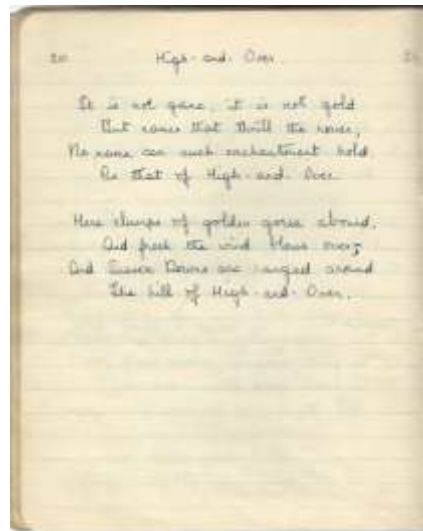 20
High-and-Over.
It is not gane, it is not gold
But names that thrill the rover,
No name can such enchantment hold
As that of High-and-Over.
Here clumps of golden gorse abound,
And fresh the wind blows over;
And Sussex Downs are ranged around
The hill of High-and-Over.